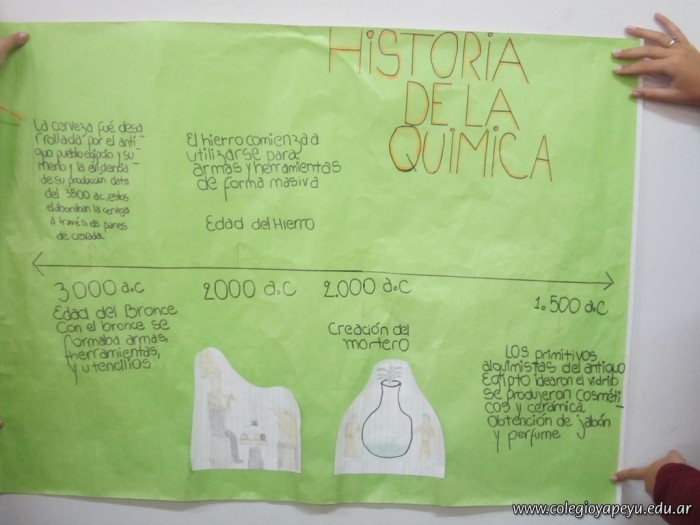 HISTORIA
DE LA
QUIMICA
La cerveza fué desa
rrollada por el anti-
guo pueblo egipcio y su
merio y la evidencia
de su producción data
del 3500 a.c, estos
elaboraban la cerveza
a través de panes
de cebada.
El hierro comienza a
utilizarse para
armas y herramientas
de forma masiva
Edad del Hierro
3000 a.C
Edad del Bronce
Con el bronce se
formaba armas,
herramientas,
y utencilios
2000 a.C
2.000 a.C
Creación del
mortero
1.500 a.C
Los primitivos
alquimistas del antiguo
Egipto idearon el vidrio
se produjeron cosméti-
cos y cerámica.
Obtención de jabón
y perfume
www.colegioyapeyu.edu.ar